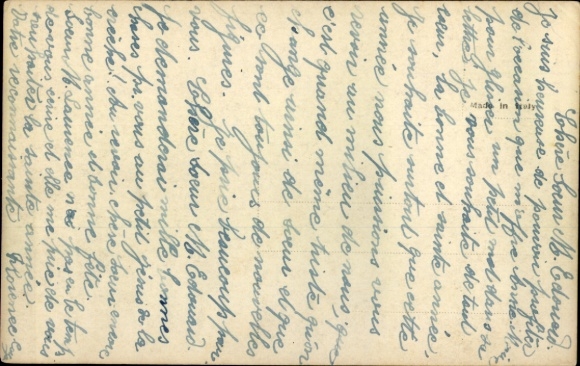 Chère Soeur M. Edouard.
Je suis heureuse de pouvoir profiter
de l'occasion que m'offre bonne M.
pour glisser un petit mot dans sa
lettre. Je vous souhaite de tout
coeur, la bonne et sainte année,
Je souhaite surtout que cette
année nous puissions vous
revoir au milieu de nous, que
c'est quand même triste qu'on
change ainsi de soeur et que
ce sont toujours de nouvelles
figures. Je prie beaucoup pour
vous. Chère Soeur M. Edouard.
Je demanderai mille bonnes
choses pr. vous au petit Jésus de la
crèche! Au revoir chère Soeur encore
bonne année et bonne fête.
Soeur M. Laurence n'a pas eu le temps
de vous écrire et elle me prie de vous
souhaiter la sainte année.
Votre reconnaissante
Made in Italy